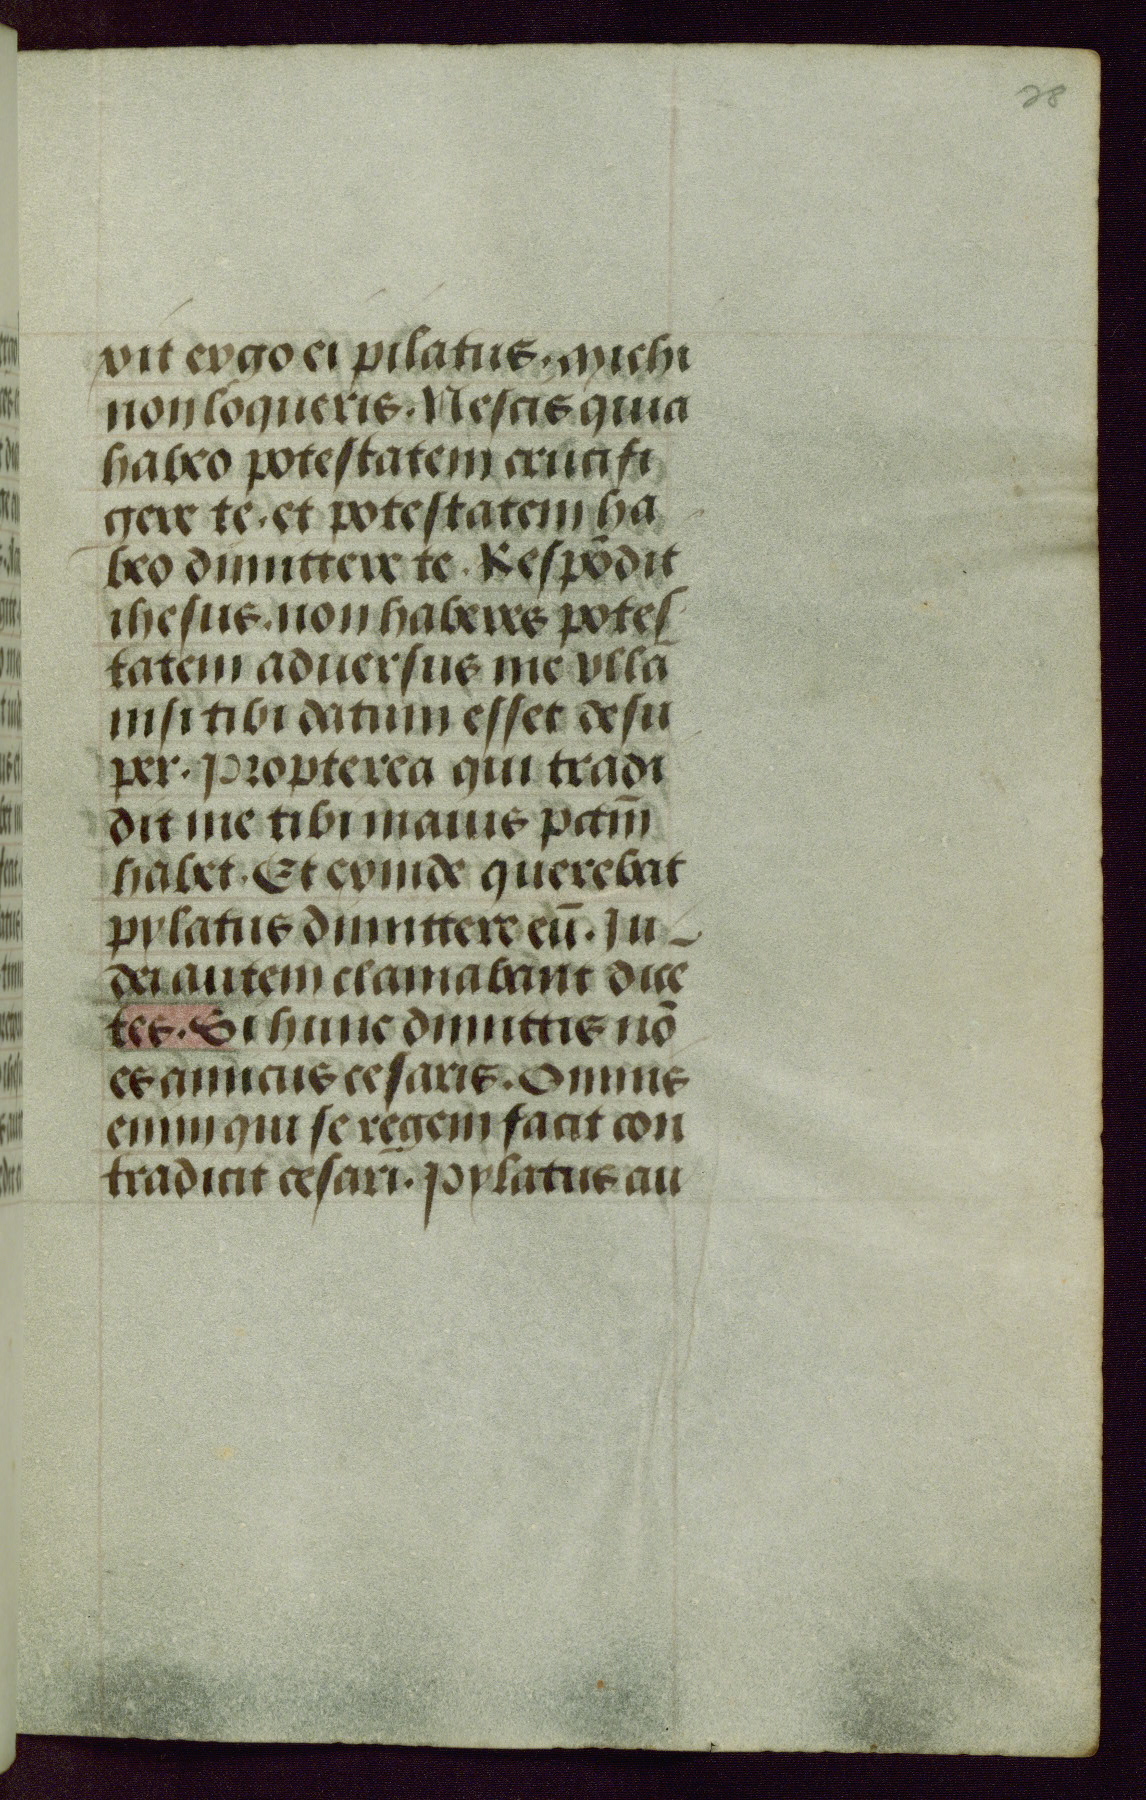 28
vit ergo ei pilatus. Michi
non loqueris. Nescis quia
habeo potestatem crucifi
gere te. et potestatem ha
beo dimittere te. Respōdit
ihesus. non haberes potes
tatem aduersus me vllā
nisi tibi datum esset desu
per. Propterea qui tradi
dit me tibi maius pctm̄
habet. Et exinde querebat
pylatus dimittere eū. Iu-
dei autem clamabant dice
tes. Si hunc dimittis nō
es amicus cesaris. Omnis
enim qui se regem facit con
tradicit cesari. Pylatus au